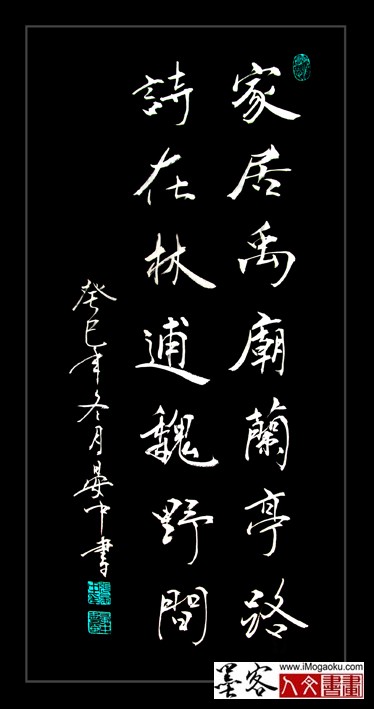 家居禹廟蘭亭路
詩在林逋魏野間
癸巳年冬月晏中書
墨客
www.iMogaoku.com
人文書畫